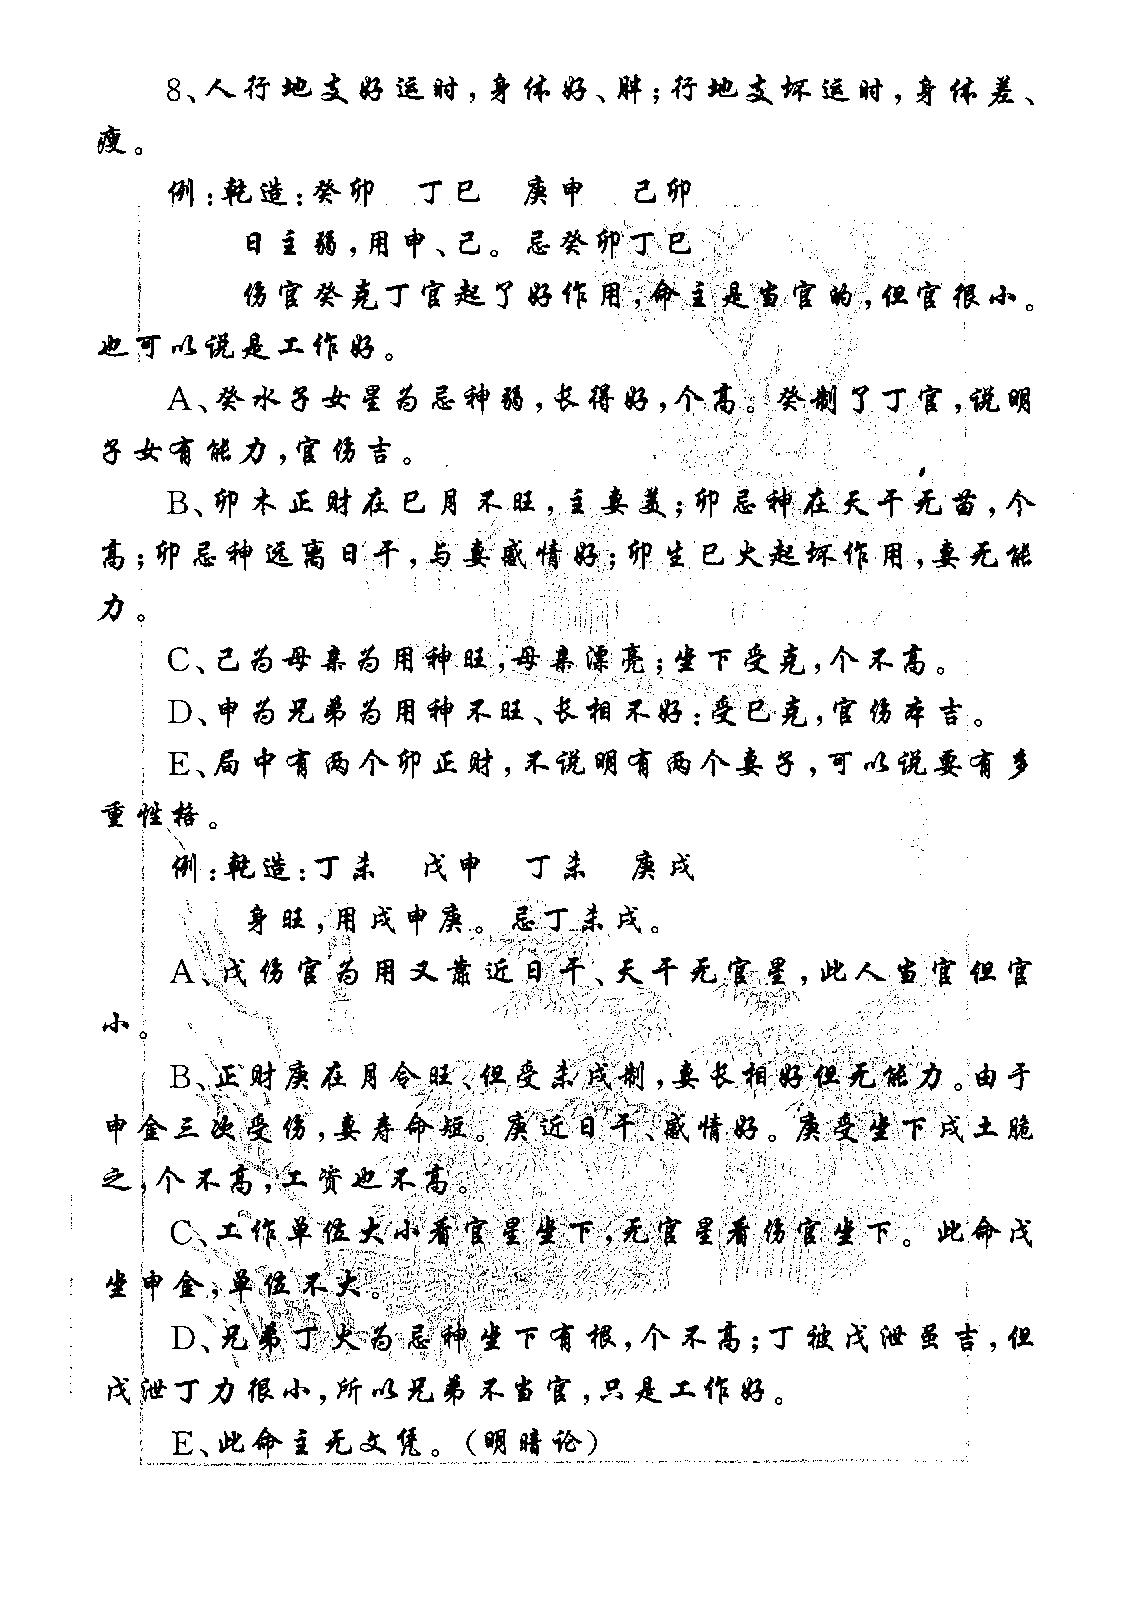 8、人行地支好运时，身体好、胖；行地支坏运时，身体差、
瘦。
例：乾造：癸卯　丁巳　庚申　己卯
日主弱，用申、己。忌癸卯丁巳
伤官癸克丁官起了好作用，命主是当官的，但官很小。
也可以说是工作好。
A、癸水子女星为忌神弱，长得好，个高。癸制了丁官，说明
子女有能力，官伤吉。
B、卯木正财在巳月不旺，主妻美；卯忌神在天干无苗，个
高；卯忌神远离日干，与妻感情好；卯生巳火起坏作用，妻无能
力。
C、己为母亲为用神旺，母亲漂亮；坐下受克，个不高。
D、申为兄弟为用神不旺、长相不好；受巳克，官伤本吉。
E、局中有两个卯正财，不说明有两个妻子，可以说要有多
重性格。
例：乾造：丁未　戊申　丁未　庚戌
身旺，用戌申庚。忌丁未戌。
A、戊伤官为用又靠近日干、天干无官星，此人当官但官
小。
B、正财庚在月令旺、但受未戌制，妻长相好但无能力。由于
申金三次受伤，妻寿命短。庚近日干、感情好。庚受坐下戌土脆
之，个不高，工资也不高。
C、工作单位大小看官星坐下，无官星看伤官坐下。此命戊
坐申金，单位不大。
D、兄弟丁火为忌神坐下有根，个不高；丁被戊泄虽吉，但
戊泄丁力很小，所以兄弟不当官，只是工作好。
E、此命主无文凭。（明暗论）